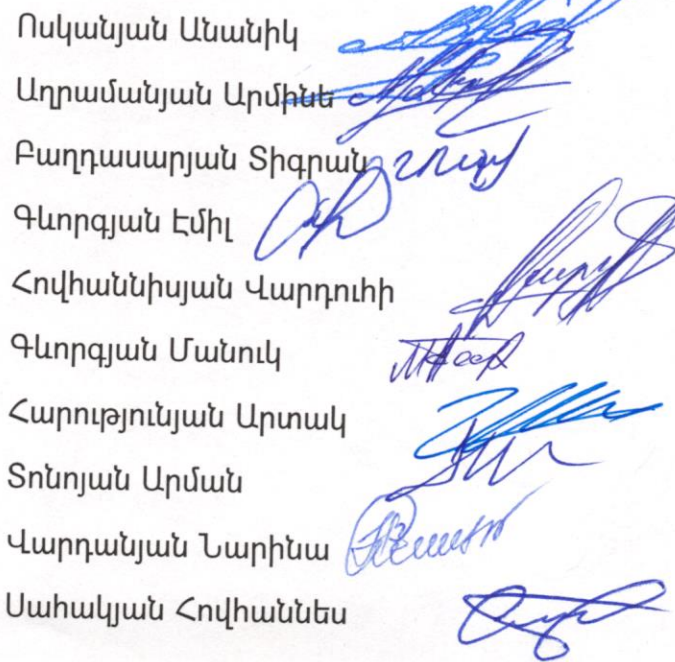 Ոսկանյան Անանիկ
Աղրամանյան Արմինե
Բաղդասարյան Տիգրան
Գևորգյան Էմիլ
Հովհաննիսյան Վարդուհի
Գևորգյան Մանուկ
Հարությունյան Արտակ
Տոնոյան Արման
Վարդանյան Նարինա
Սահակյան Հովհաննես